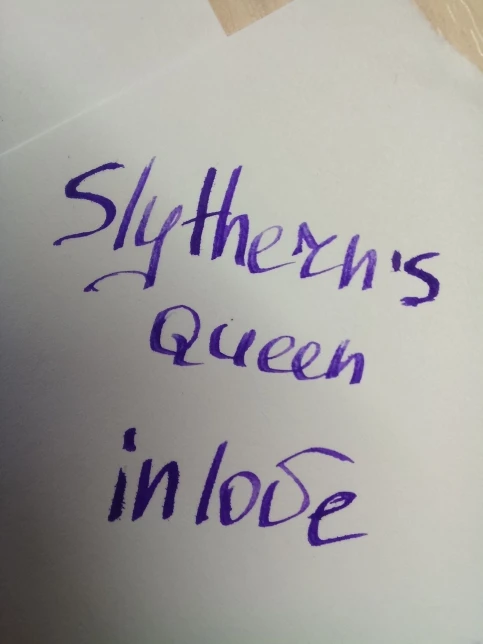 Slythern's
Queen
in love